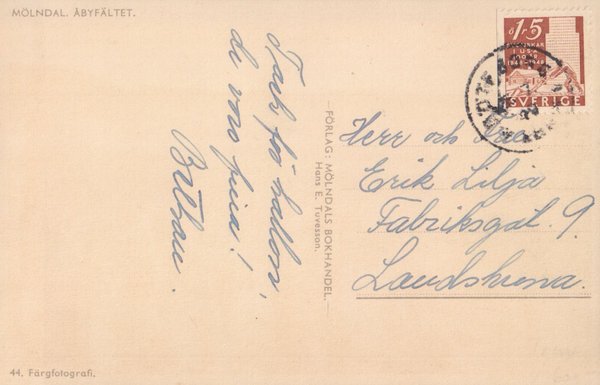 MÖLNDAL. ÅBYFÄLTET.
Tack för hallon,
de voro fina!
FÖRLAG: MÖLNDALS BOKHANDEL.
Hans E. Tuvesson.
öre 15
I USA
1948
SVERIGE
Herr och Fru
Erik Lilja
Fabriksgat. 9.
Landskrona.
44. Färgfotografi.